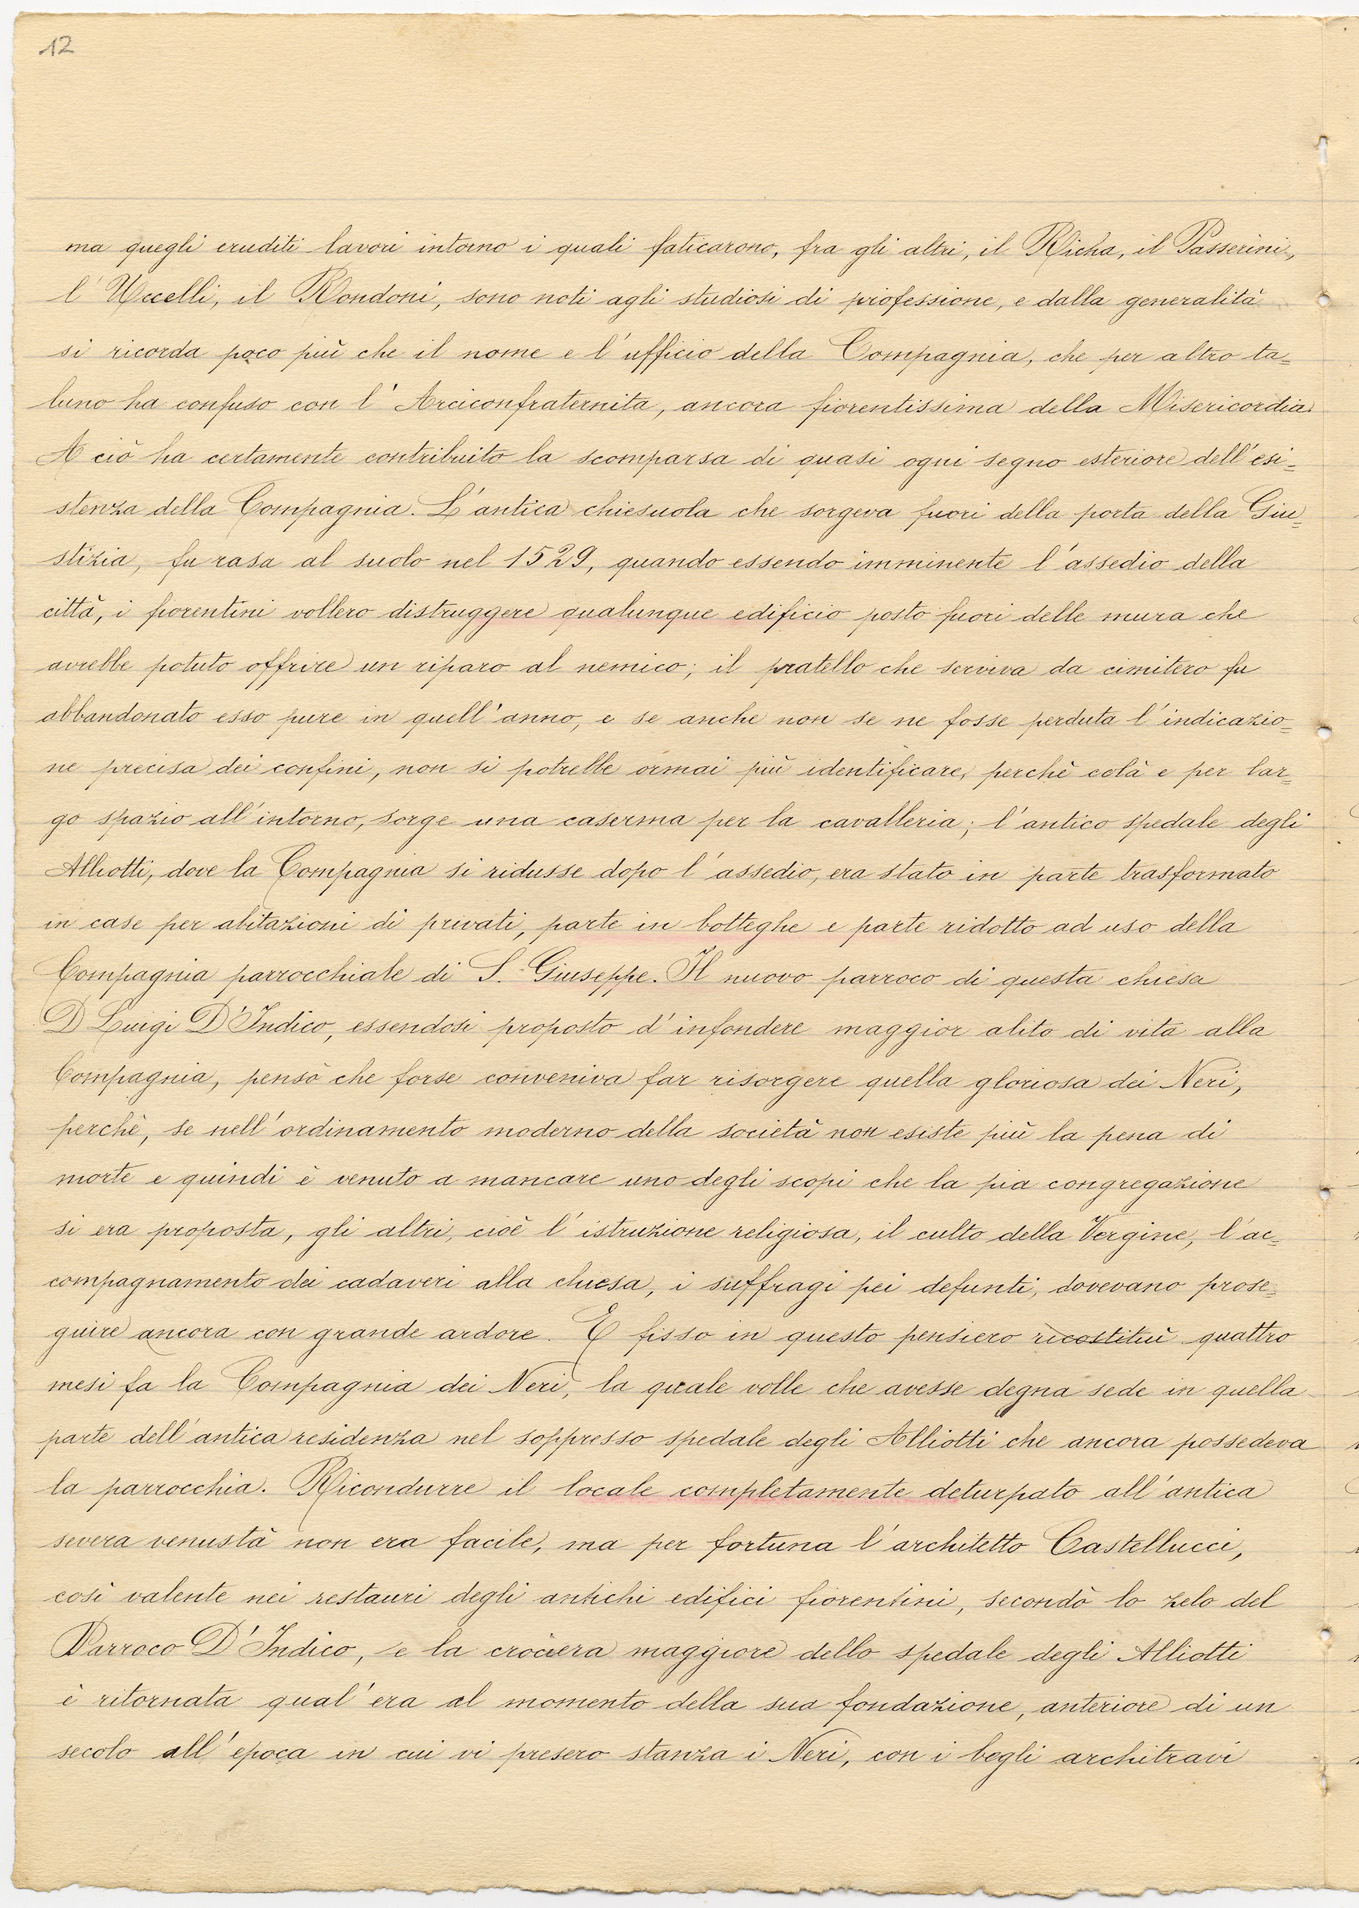 12
ma quegli eruditi lavori intorno i quali faticarono, fra gli altri, il Richa, il Passerini,
l'Uccelli, il Rondoni, sono noti agli studiosi di professione, e dalla generalità
si ricorda poco più che il nome e l'ufficio della Compagnia, che per altro ta=
luno ha confuso con l'Arciconfraternita, ancora fiorentissima della Misericordia.
A ciò ha certamente contribuito la scomparsa di quasi ogni segno esteriore dell'esi=
stenza della Compagnia. L'antica chiesuola che sorgeva fuori della porta della Giu=
stizia, fu rasa al suolo nel 1529, quando essendo imminente l'assedio della
città, i fiorentini vollero distruggere qualunque edificio posto fuori delle mura che
avrebbe potuto offrire un riparo al nemico; il pratello che serviva da cimitero fu
abbandonato esso pure in quell'anno, e se anche non se ne fosse perduta l'indicazio=
ne precisa dei confini, non si potrebbe ormai più identificare, perchè colà e per lar=
go spazio all'intorno, sorge una caserma per la cavalleria; l'antico spedale degli
Alliotti, dove la Compagnia si ridusse dopo l'assedio, era stato in parte trasformato
in case per abitazioni di privati, parte in botteghe e parte ridotto ad uso della
Compagnia parrocchiale di S. Giuseppe. Il nuovo parroco di questa chiesa
D Luigi D'Indico, essendosi proposto d'infondere maggior alito di vita alla
Compagnia, pensò che forse conveniva far risorgere quella gloriosa dei Neri,
perchè, se nell'ordinamento moderno della società non esiste più la pena di
morte e quindi è venuto a mancare uno degli scopi che la pia congregazione
si era proposta, gli altri, cioè l'istruzione religiosa, il culto della Vergine, l'ac=
compagnamento dei cadaveri alla chiesa, i suffragi pei defunti, dovevano prose=
guire ancora con grande ardore. E fisso in questo pensiero ricostituì quattro
mesi fa la Compagnia dei Neri, la quale volle che avesse degna sede in quella
parte dell'antica residenza nel soppresso spedale degli Alliotti che ancora possedeva
la parrocchia. Ricondurre il locale completamente deturpato all'antica
severa venustà non era facile, ma per fortuna l'architetto Castellucci,
così valente nei restauri degli antichi edifici fiorentini, secondò lo zelo del
Parroco D'Indico, e la crociera maggiore dello spedale degli Alliotti
è ritornata qual'era al momento della sua fondazione, anteriore di un
secolo all'epoca in cui vi presero stanza i Neri, con i begli architravi